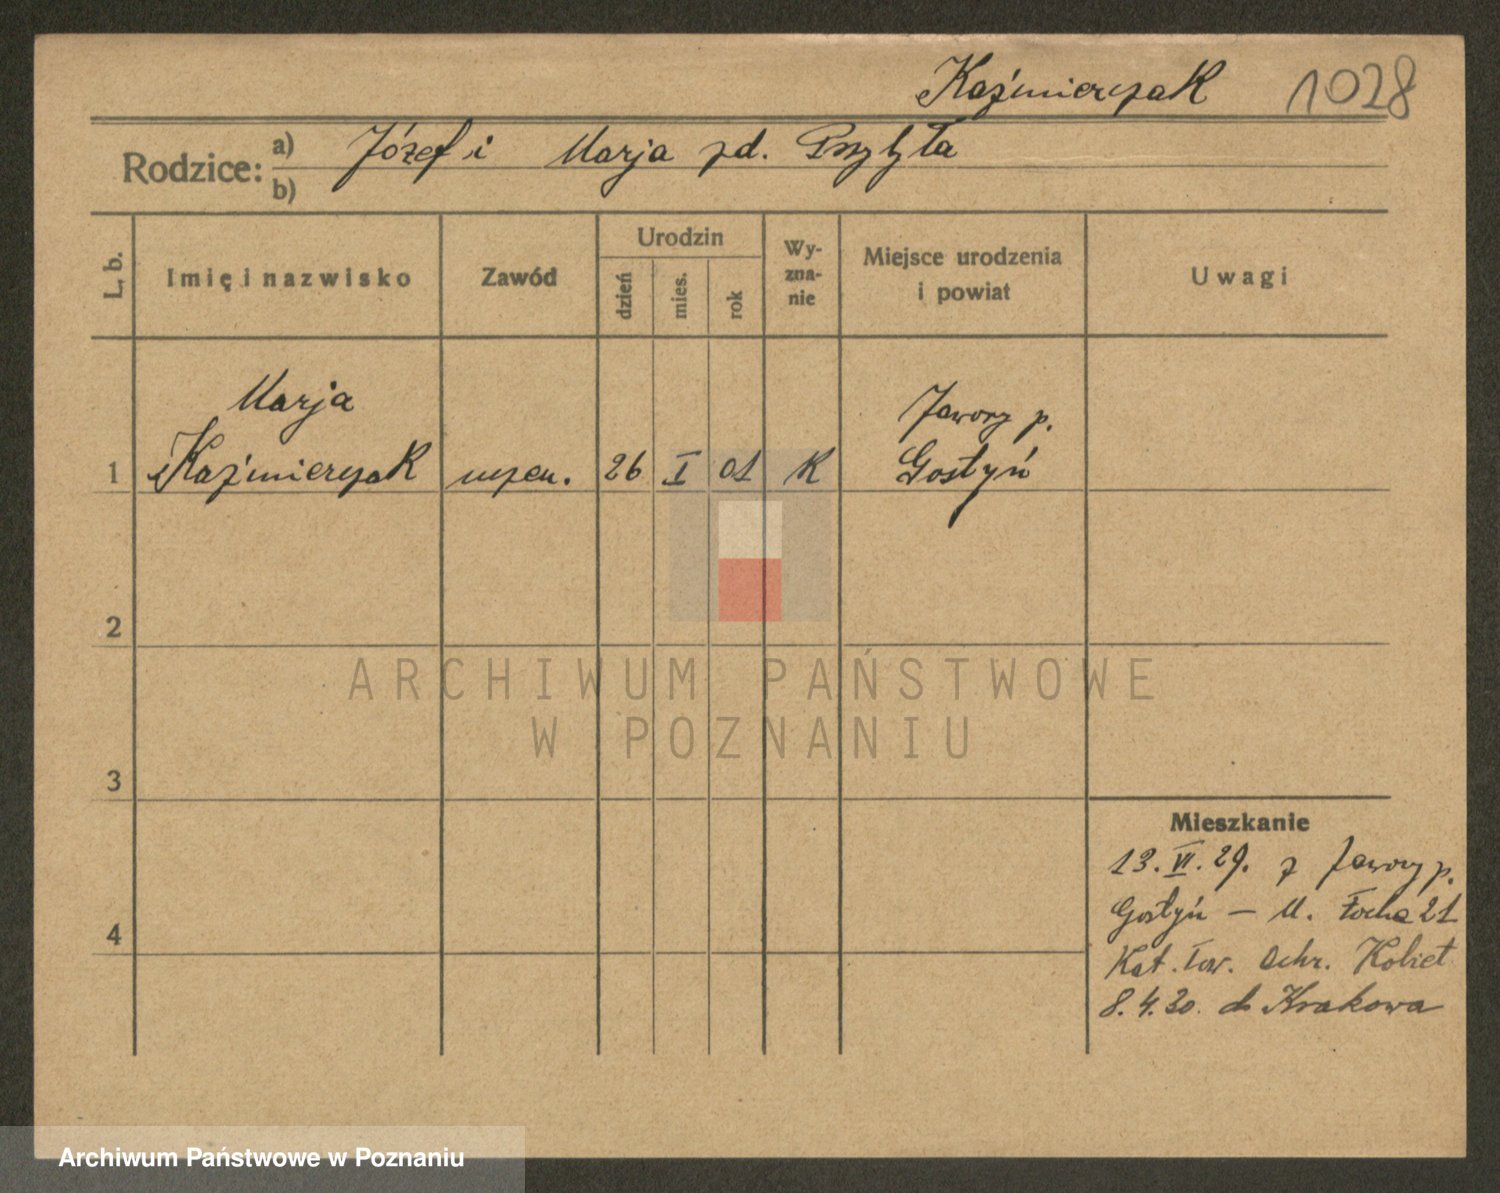 Kaźmierczak 1028
Rodzice:
a) Józef i Marja zd. Przybyła
b)
L. b.
Imię i nazwisko
Zawód
Urodzin
dzień
mies.
rok
Wy-
zna-
nie
Miejsce urodzenia
i powiat
Uwagi
Marja
1 Kaźmierczak uczen. 26 I 01 K
Jawory p.
Gostyń
2
3
4
ARCHIWUM PAŃSTWOWE
W POZNANIU
Mieszkanie
13. VI. 29. z Jawory p.
Gostyń — M. Focha 21
Kat. Tow. Ochr. Kobiet
8. 4. 30. do Krakowa
Archiwum Państwowe w Poznaniu